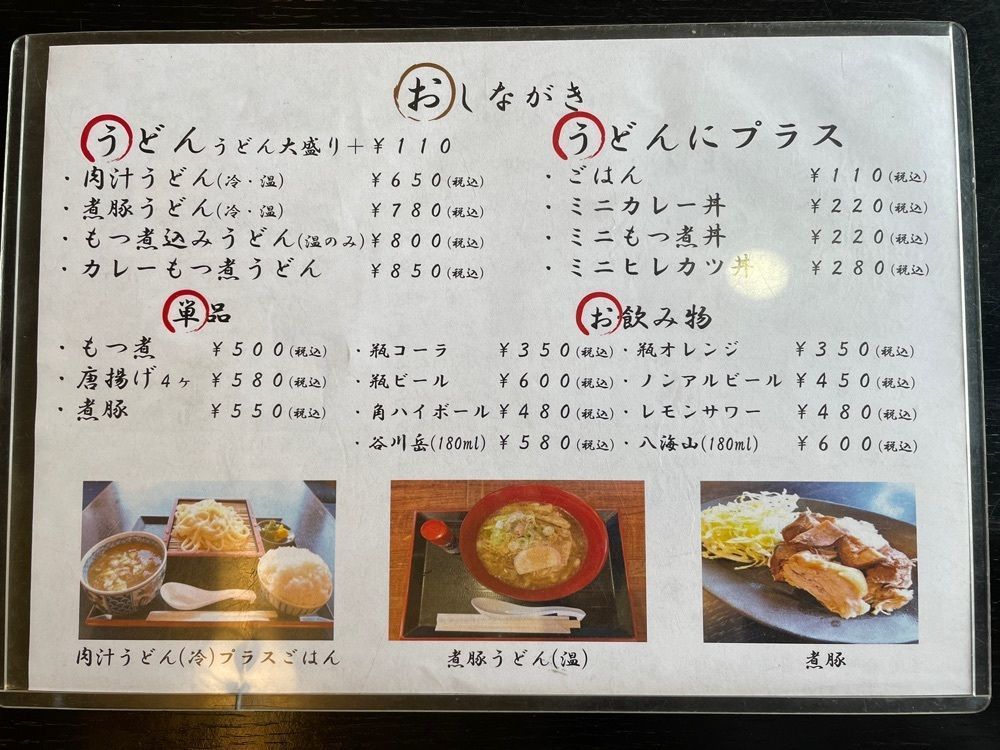 おしながき
うどん うどん大盛り+￥110
・肉汁うどん(冷・温) ￥650(税込)
・煮豚うどん(冷・温) ￥780(税込)
・もつ煮込みうどん(温のみ) ￥800(税込)
・カレーもつ煮うどん ￥850(税込)
うどんにプラス
・ごはん ￥110(税込)
・ミニカレー丼 ￥220(税込)
・ミニもつ煮丼 ￥220(税込)
・ミニヒレカツ丼 ￥280(税込)
単品
・もつ煮 ￥500(税込)
・唐揚げ4ヶ ￥580(税込)
・煮豚 ￥550(税込)
お飲み物
・瓶コーラ ￥350(税込)・瓶オレンジ ￥350(税込)
・瓶ビール ￥600(税込)・ノンアルビール ￥450(税込)
・角ハイボール ￥480(税込)・レモンサワー ￥480(税込)
・谷川岳(180ml) ￥580(税込)・八海山(180ml) ￥600(税込)
肉汁うどん(冷)プラスごはん
煮豚うどん(温)
煮豚